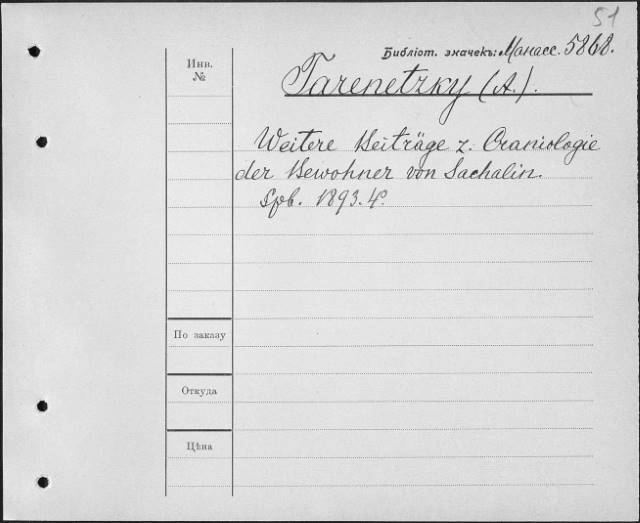 51
Библіот. значекъ: Манасс. 5868.
Инв.
№
Tarenetzky (A.).
Weitere Beiträge z. Craniologie
der Bewohner von Sachalin.
Spb. 1893. 4º.
По заказу
Откуда
Цѣна